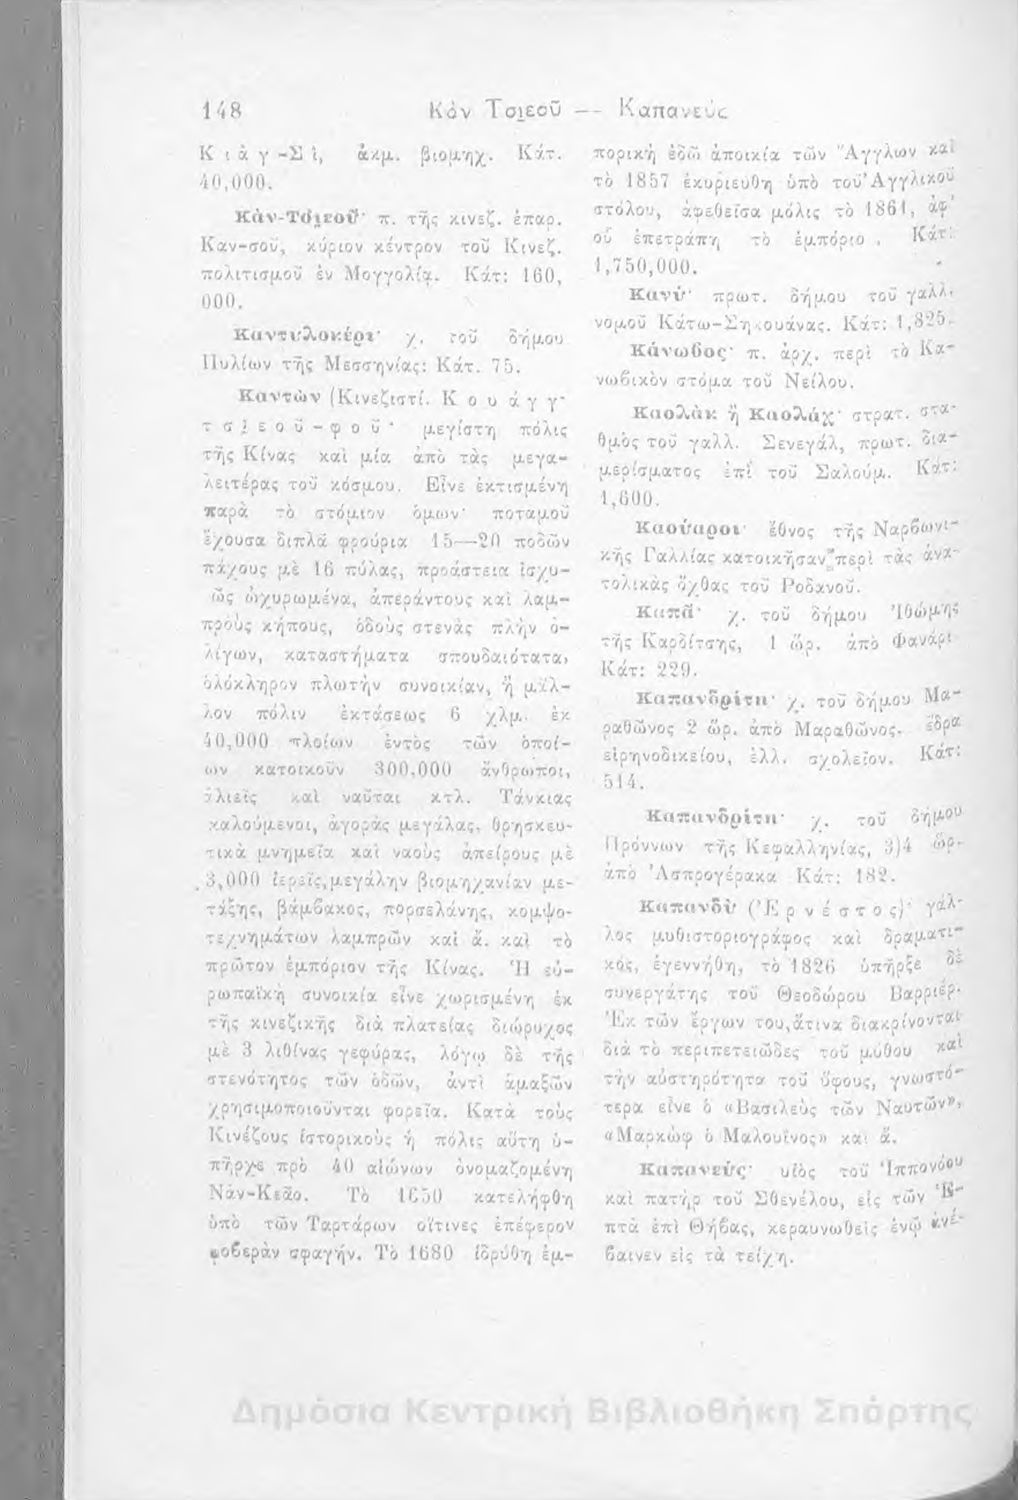 148 Κὰν Τσιεοῦ — Καπανεύς
Κιὰγ-Σὶ, ἀκμ. βιομηχ. Κάτ.
40,000.
Κὰν-Τσιεοῦ· π. τῆς κινεζ. ἐπαρ.
Καν-σοῦ, κύριον κέντρον τοῦ Κινεζ.
πολιτισμοῦ ἐν Μογγολίᾳ. Κάτ: 160,
000.
Καντυλοκέρι· χ. τοῦ δήμου
Πυλίων τῆς Μεσσηνίας: Κάτ. 75.
Καντὼν (Κινεζιστί. Κουάγγ·
τσιεοῦ-φοῦ· μεγίστη πόλις
τῆς Κίνας καὶ μία ἀπὸ τὰς μεγα-
λειτέρας τοῦ κόσμου. Εἶνε ἐκτισμένη
παρὰ τὸ στόμιον ὁμων· ποταμοῦ
ἔχουσα διπλᾶ φρούρια 15—20 ποδῶν
πάχους μὲ 16 πύλας, προάστεια ἰσχυ-
ῶς ὠχυρωμένα, ἀπεράντους καὶ λαμ-
προὺς κήπους, ὁδοὺς στενὰς πλὴν ὀ-
λίγων, καταστήματα σπουδαιότατα,
ὁλόκληρον πλωτὴν συνοικίαν, ἢ μᾶλ-
λον πόλιν ἐκτάσεως 6 χλμ. ἐκ
40,000 πλοίων ἐντὸς τῶν ὁποί-
ων κατοικοῦν 300,000 ἄνθρωποι,
ἁλιεῖς καὶ ναῦται κτλ. Τάνκιας
καλούμενοι, ἀγορὰς μεγάλας, θρησκευ-
τικὰ μνημεῖα καὶ ναοὺς ἀπείρους μὲ
3,000 ἱερεῖς, μεγάλην βιομηχανίαν με-
τάξης, βάμβακος, πορσελάνης, κομψο-
τεχνημάτων λαμπρῶν καὶ ἄ. καὶ τὸ
πρῶτον ἐμπόριον τῆς Κίνας. Ἡ εὐ-
ρωπαϊκὴ συνοικία εἶνε χωρισμένη ἐκ
τῆς κινεζικῆς διὰ πλατείας διώρυχος
μὲ 3 λιθίνας γεφύρας, λόγῳ δὲ τῆς
στενότητος τῶν ὁδῶν, ἀντὶ ἁμαξῶν
χρησιμοποιοῦνται φορεῖα. Κατὰ τοὺς
Κινέζους ἱστορικοὺς ἡ πόλις αὕτη ὑ-
πῆρχε πρὸ 40 αἰώνων ὀνομαζομένη
Νάν-Κεᾶο. Τὸ 1650 κατελήφθη
ὑπὸ τῶν Ταρτάρων οἵτινες ἐπέφερον
φοβερὰν σφαγήν. Τὸ 1680 ἱδρύθη ἐμ-
πορικὴ ἐδῶ ἀποικία τῶν Ἄγγλων καὶ
τὸ 1857 ἐκυριεύθη ὑπὸ τοῦ Ἀγγλικοῦ
στόλου, ἀφεθεῖσα μόλις τὸ 1861, ἀφ'
οὗ ἐπετράπη τὸ ἐμπόριο. Κάτ:
1,750,000.
Κανύ· πρωτ. δήμου τοῦ γαλλ.
νομοῦ Κάτω-Σηκουάνας. Κάτ: 1,825.
Κάνωβος· π. ἀρχ. περὶ τὸ Κα-
νωβικὸν στόμα τοῦ Νείλου.
Καολὰκ ἢ Καολάχ· στρατ. στα-
θμὸς τοῦ γαλλ. Σενεγάλ, πρωτ. δια-
μερίσματος ἐπὶ τοῦ Σαλούμ. Κάτ:
1,600.
Καούαροι· ἔθνος τῆς Ναρβωνι-
κῆς Γαλλίας κατοικῆσαν περὶ τὰς ἀνα-
τολικὰς ὄχθας τοῦ Ροδανοῦ.
Καπᾶ· χ. τοῦ δήμου Ἰθώμης
τῆς Καρδίτσης, 1 ὥρ. ἀπὸ Φανάρι
Κάτ: 229.
Καπανδρίτη· χ. τοῦ δήμου Μα-
ραθῶνος 2 ὥρ. ἀπὸ Μαραθῶνος. ἕδρα
εἰρηνοδικείου, ἑλλ. σχολεῖον. Κάτ:
514.
Καπανδρίτη· χ. τοῦ δήμου
Πρόννων τῆς Κεφαλληνίας, 3)4 ὥρ.
ἀπὸ Ἀσπρογέρακα Κάτ: 182.
Καπανδὺ (Ἐρνέστος)· γάλ-
λος μυθιστοριογράφος καὶ δραματι-
κός, ἐγεννήθη, τὸ 1826 ὑπῆρξε δὲ
συνεργάτης τοῦ Θεοδώρου Βαρριέρ.
Ἐκ τῶν ἔργων του, ἅτινα διακρίνονται
διὰ τὸ περιπετειῶδες τοῦ μύθου καὶ
τὴν αὐστηρότητα τοῦ ὕφους, γνωστό-
τερα εἶνε ὁ «Βασιλεὺς τῶν Ναυτῶν»,
«Μαρκὼφ ὁ Μαλουῖνος» καὶ ἄ.
Καπανεύς· υἱὸς τοῦ Ἱππονόου
καὶ πατὴρ τοῦ Σθενέλου, εἷς τῶν Ἑ-
πτὰ ἐπὶ Θήβας, κεραυνωθεὶς ἐνῷ ἀνέ-
βαινεν εἰς τὰ τείχη.
Δημόσια Κεντρική Βιβλιοθήκη Σπάρτης